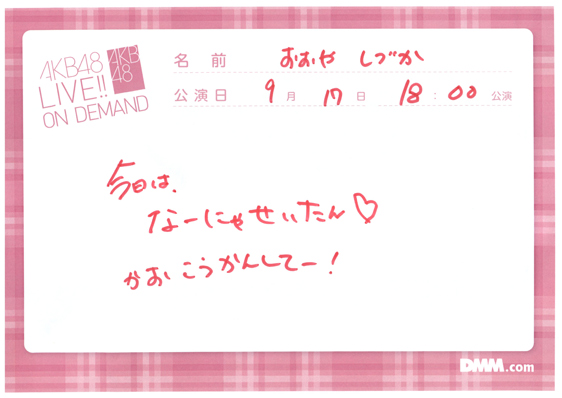 AKB48
LIVE!!
ON DEMAND
AKB
48
名前 おおや しづか
公演日 9月 17日 18:00 公演
今日は、
なーにゃせいたん♡
かおこうかんしてー!
DMM.com